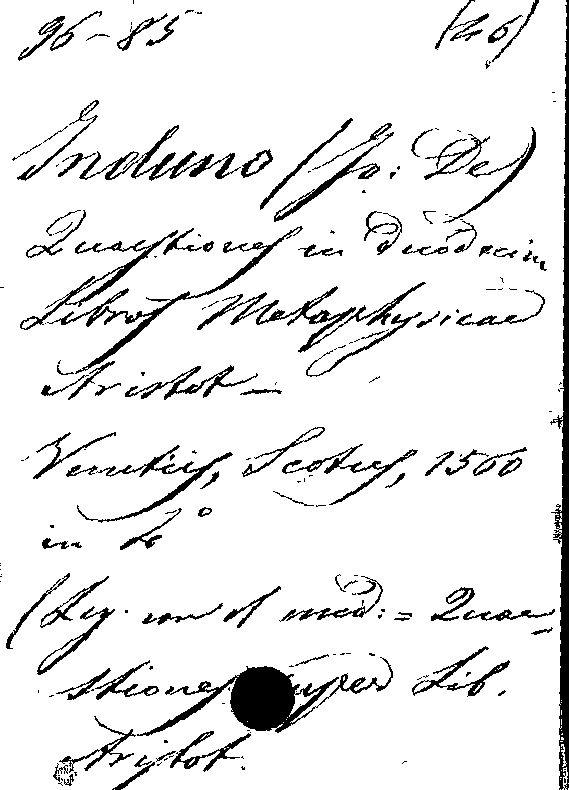 96-85 (26)
Induno (Jo: De)
Quaestiones in duodecim
Libros Metaphysicae
Aristot —
Venetiis, Scotus, 1560
in 4°
(Leg. con el med: = Quae-
stiones super Lib.
Aristot.